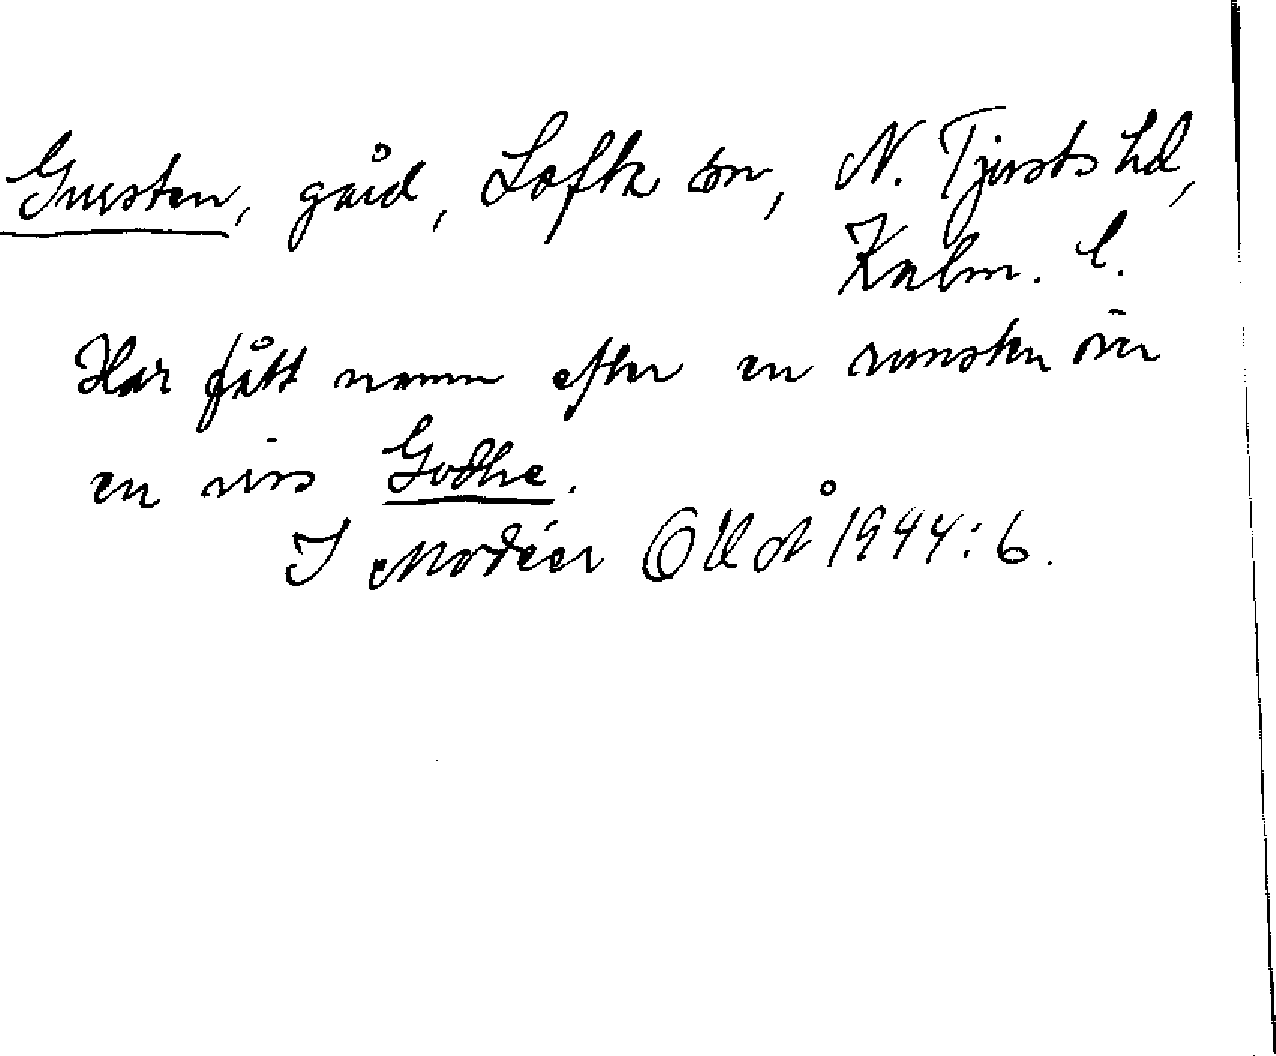 Gursten, gård, Lofta sn, N. Tjusts hd,
Kalm. l.
Har fått namn efter en runsten över
en viss Godhe.
I Modéer OUÅ 1944:6.